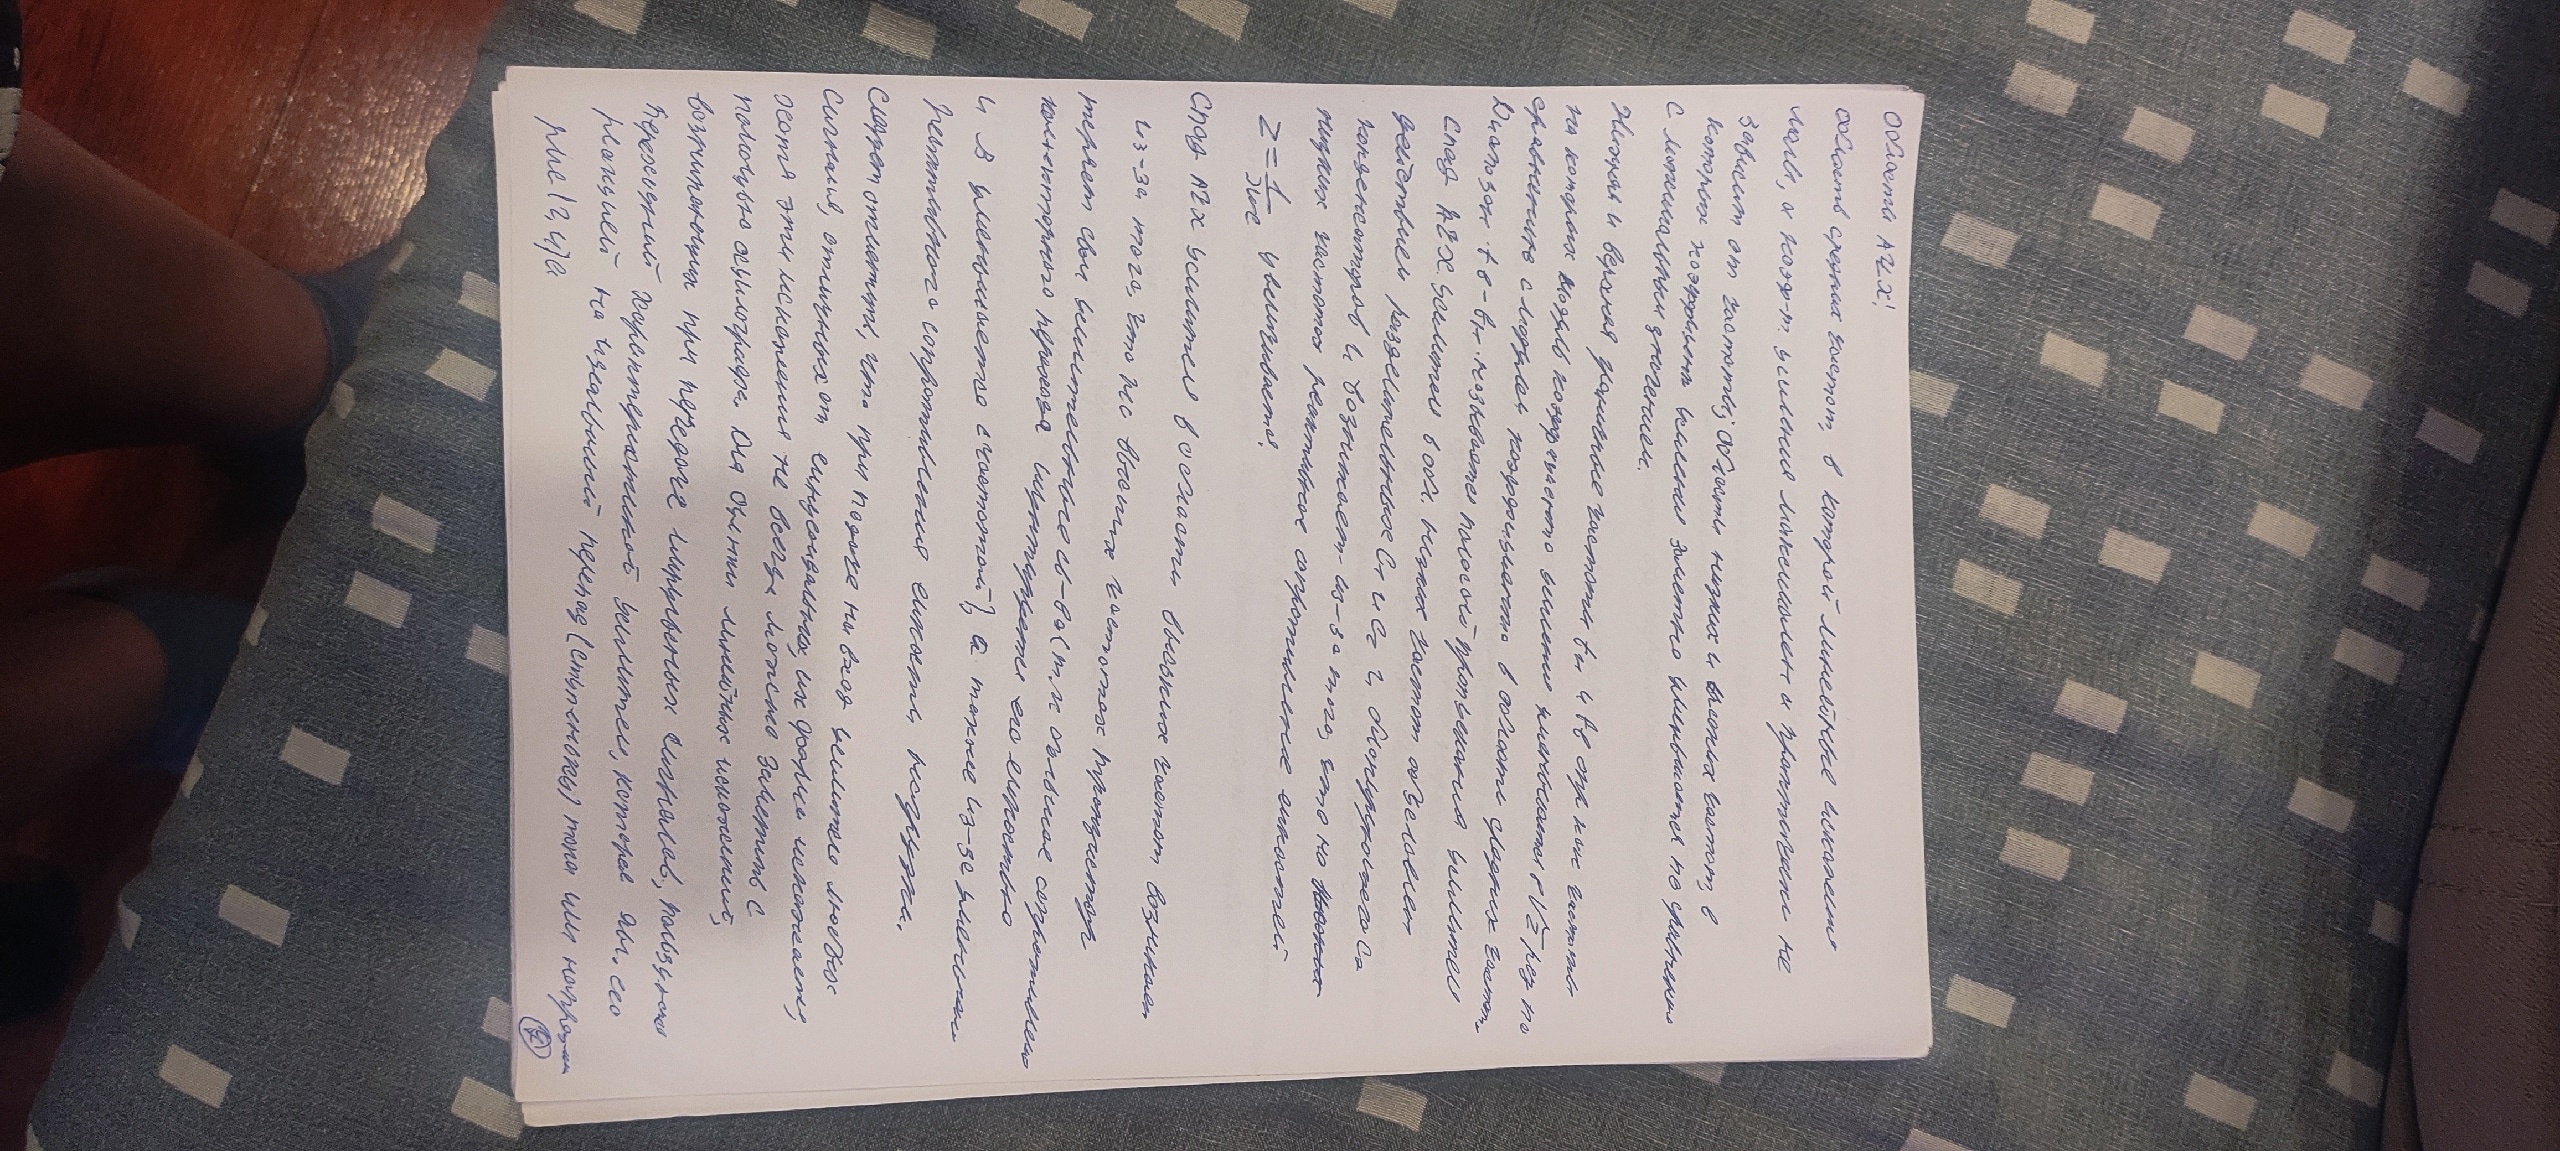 Области АЧХ!
область средних частот, в которой линейные искажения
малы, а коэф-т. усиления максимален и практически не
зависит от частоты; Область низких и высоких частот, в
которых коэффициент усиления заметно уменьшается по сравнению
с максимальным значением.
Нижняя и верхняя граничные частоты fн и fв опр как частоты
на которых модуль коэф-циента усиления уменьшается в √2 раз по
сравнению с модулем коэффициента в области средних частот.
Диапазон fв-fн. называется полосой пропускания усилителя
Спад АЧХ усилителя в обл. низких частот обусловлен
действием разделительных C1 и C2 и блокировочного C3
конденсаторов и возникает из-за того, что на
низких частотах реактивное сопротивление емкостей
Z = 1/jwc увеличивается.
Спад АЧХ усилителя в области высоких частот возникает
из-за того, что на высоких частотах транзистор
теряет свои усилительные св-ва (т.к. объемное сопротивление
коллекторного перехода шунтируется его емкостью
и β уменьшается с частотой) а также из-за уменьшения
реактивного сопротивления емкости нагрузки.
Следует отметить, что при подаче на вход усилителя любых
сигналов, отличных от синусоидальных, их форма искажается,
хотя эти искажения не всегда можно заметить с
помощью осциллографа. Для оценки линейных искажений,
возникающих при передаче импульсных сигналов, пользуются
Переходной характеристикой усилителя, которая явл. его
реакцией на идеальный перепад (ступеньку) тока или напряжения
рис (2, 4) а